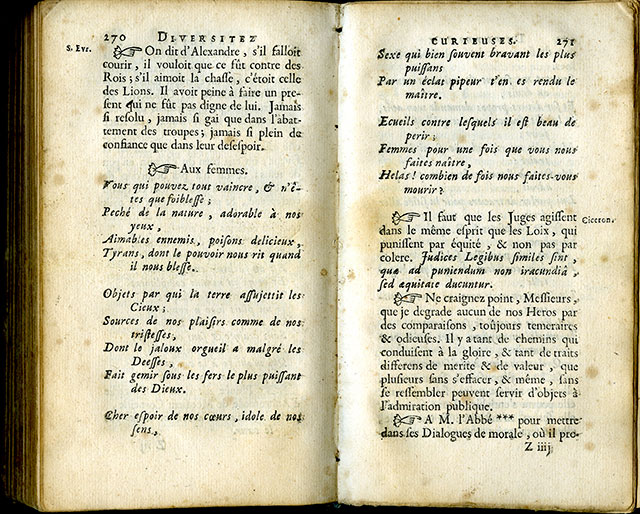 270 DIVERSITEZ
S. Evr.
☞ On dit d'Alexandre, s'il falloit
courir, il vouloit que ce fût contre des
Rois; s'il aimoit la chaſſe, c'étoit celle
des Lions. Il avoit peine à faire un pre-
ſent qui ne fût pas digne de lui. Jamais
ſi reſolu, jamais ſi gai que dans l'abat-
tement des troupes; jamais ſi plein de
confiance que dans leur deseſpoir.
☞ Aux femmes.
Vous qui pouvez tout vaincre, & n'ê-
tes que foibleſſe;
Peché de la nature, adorable à nos
yeux,
Aimables ennemis, poiſons delicieux,
Tyrans, dont le pouvoir nous rit quand
il nous bleſſe.
Objets par qui la terre aſſujettit les
Cieux;
Sources de nos plaiſirs comme de nos
triſteſſes,
Dont le jaloux orgueil a malgré les
Deeſſes,
Fait gemir ſous les fers le plus puiſſant
des Dieux.
Cher eſpoir de nos cœurs, idole de nos
ſens,
CURIEUSES. 271
Sexe qui bien ſouvent bravant les plus
puiſſans
Par un éclat pipeur t'en es rendu le
maître.
Ecueils contre leſquels il eſt beau de
perir;
Femmes pour une fois que vous nous
faites naître,
Helas! combien de fois nous faites-vous
mourir?
☞ Il faut que les Juges agiſſent
Ciceron.
dans le même eſprit que les Loix, qui
puniſſent par équité, & non pas par
colere. Judices Legibus ſimiles ſint,
quæ ad puniendum non iracundiâ,
ſed æquitate ducuntur.
☞ Ne craignez point, Meſſieurs,
que je degrade aucun de nos Heros par
des comparaiſons, toûjours temeraires
& odieuſes. Il y a tant de chemins qui
conduiſent à la gloire, & tant de traits
differens de merite & de valeur, que
pluſieurs ſans s'effacer, & même, ſans
ſe reſſembler peuvent ſervir d'objets à
l'admiration publique.
☞ A M. l'Abbé *** pour mettre
dans ſes Dialogues de morale, où il pro-
Z iiij